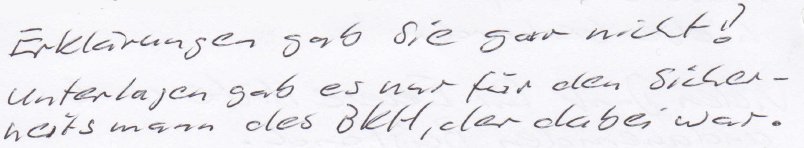 Erklärungen gab Sie gar nicht!
Unterlagen gab es nur für den Sicher-
heitsmann des BKH, der dabei war.